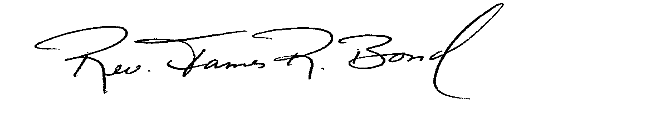 Rev. James R. Bond